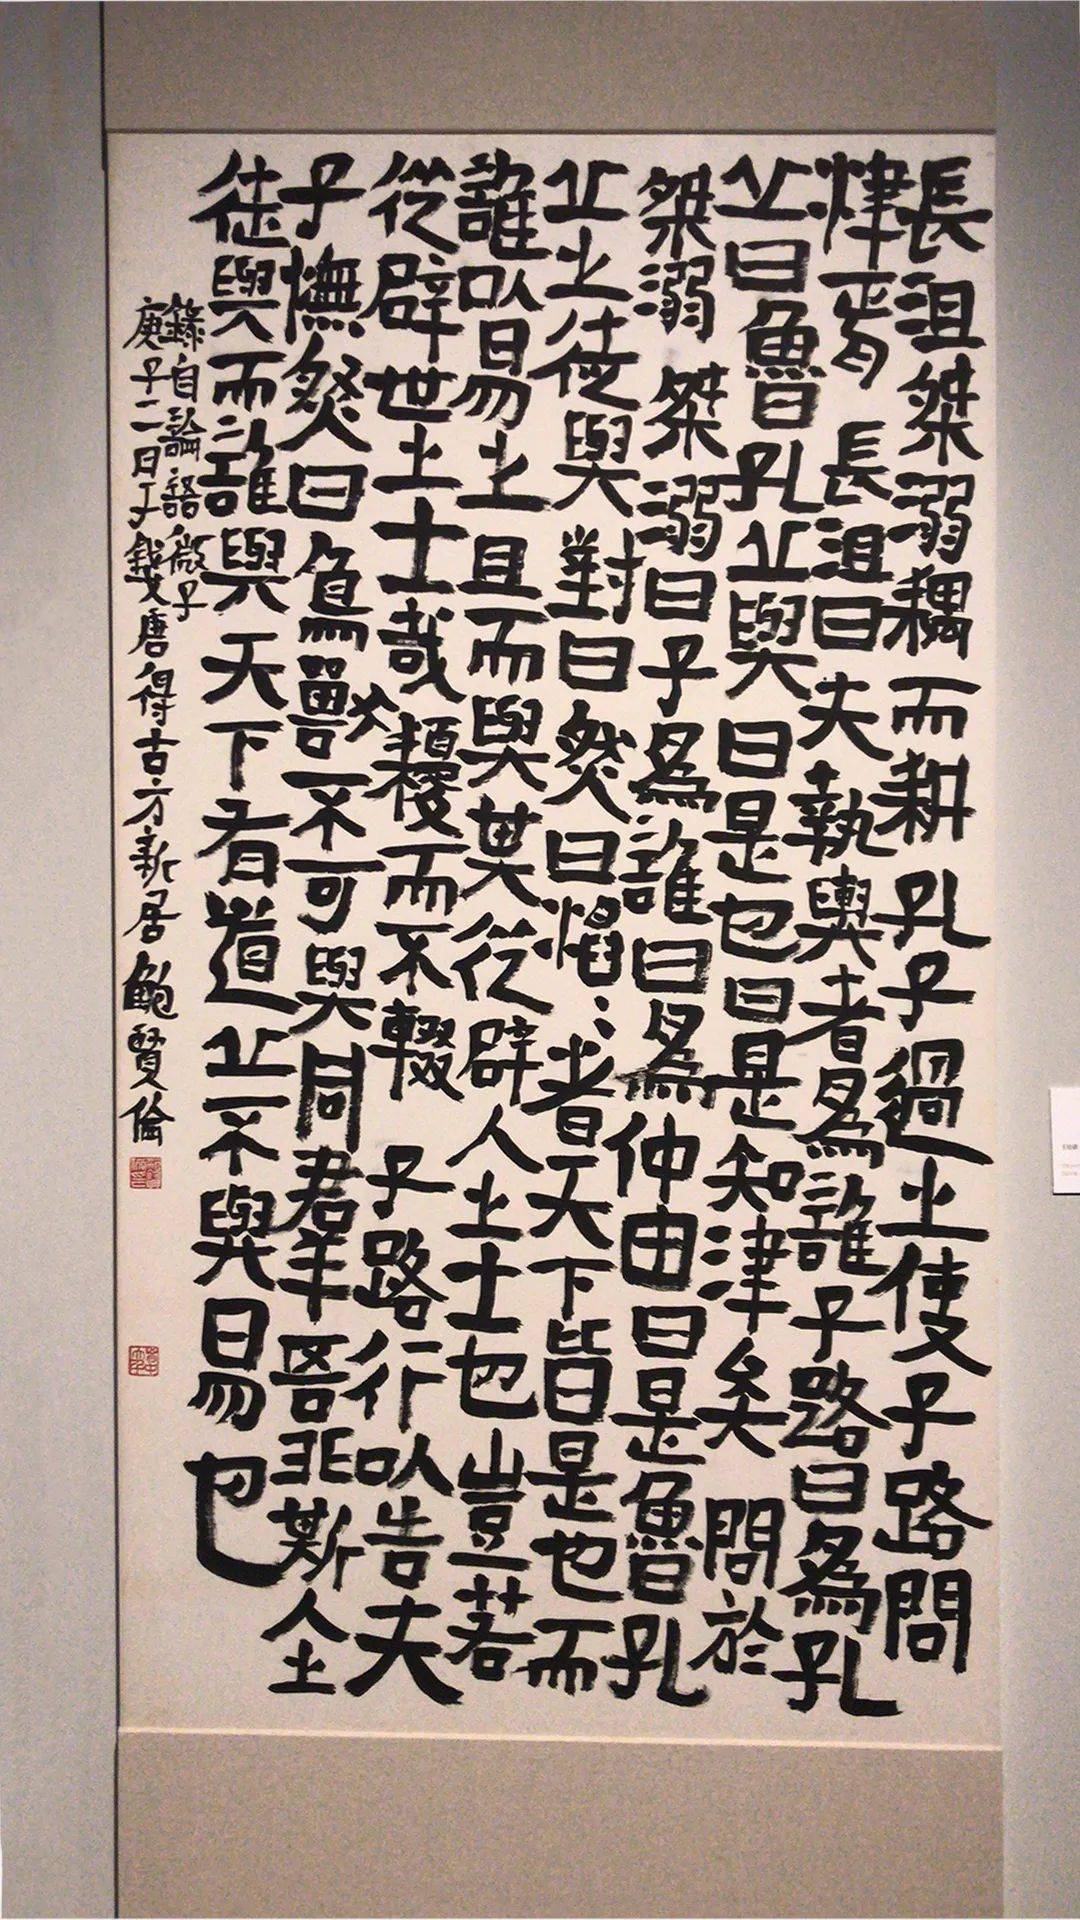 長沮桀溺耦而耕孔子過之使子路問
津焉長沮曰夫執輿者為誰子路曰為孔
丘曰魯孔丘與曰是也曰是知津矣問於
桀溺桀溺曰子為誰曰為仲由曰是魯孔
丘之徒與對曰然曰滔:者天下皆是也而
誰以易之且而與其從辟人之士也豈若
從辟世之士哉耰而不輟子路行以告夫
子憮然曰鳥獸不可與同羣吾非斯人之
徒與而誰與天下有道丘不與易也
錄自論語微子
庚子二日于錢唐得古方新居鮑賢倫